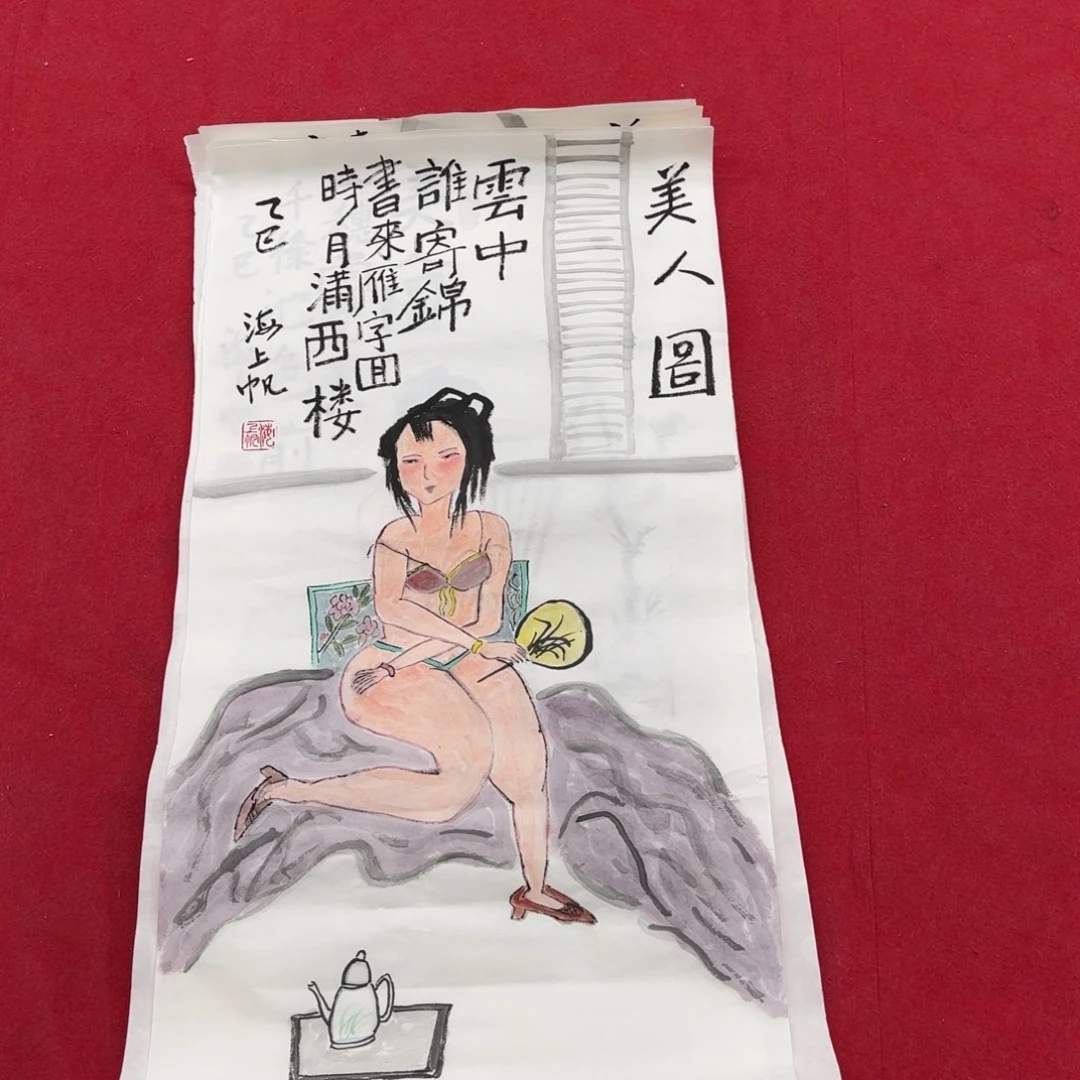 美人圖
雲中
誰寄錦
書來雁字回
時月滿西楼
乙巳
海上帆